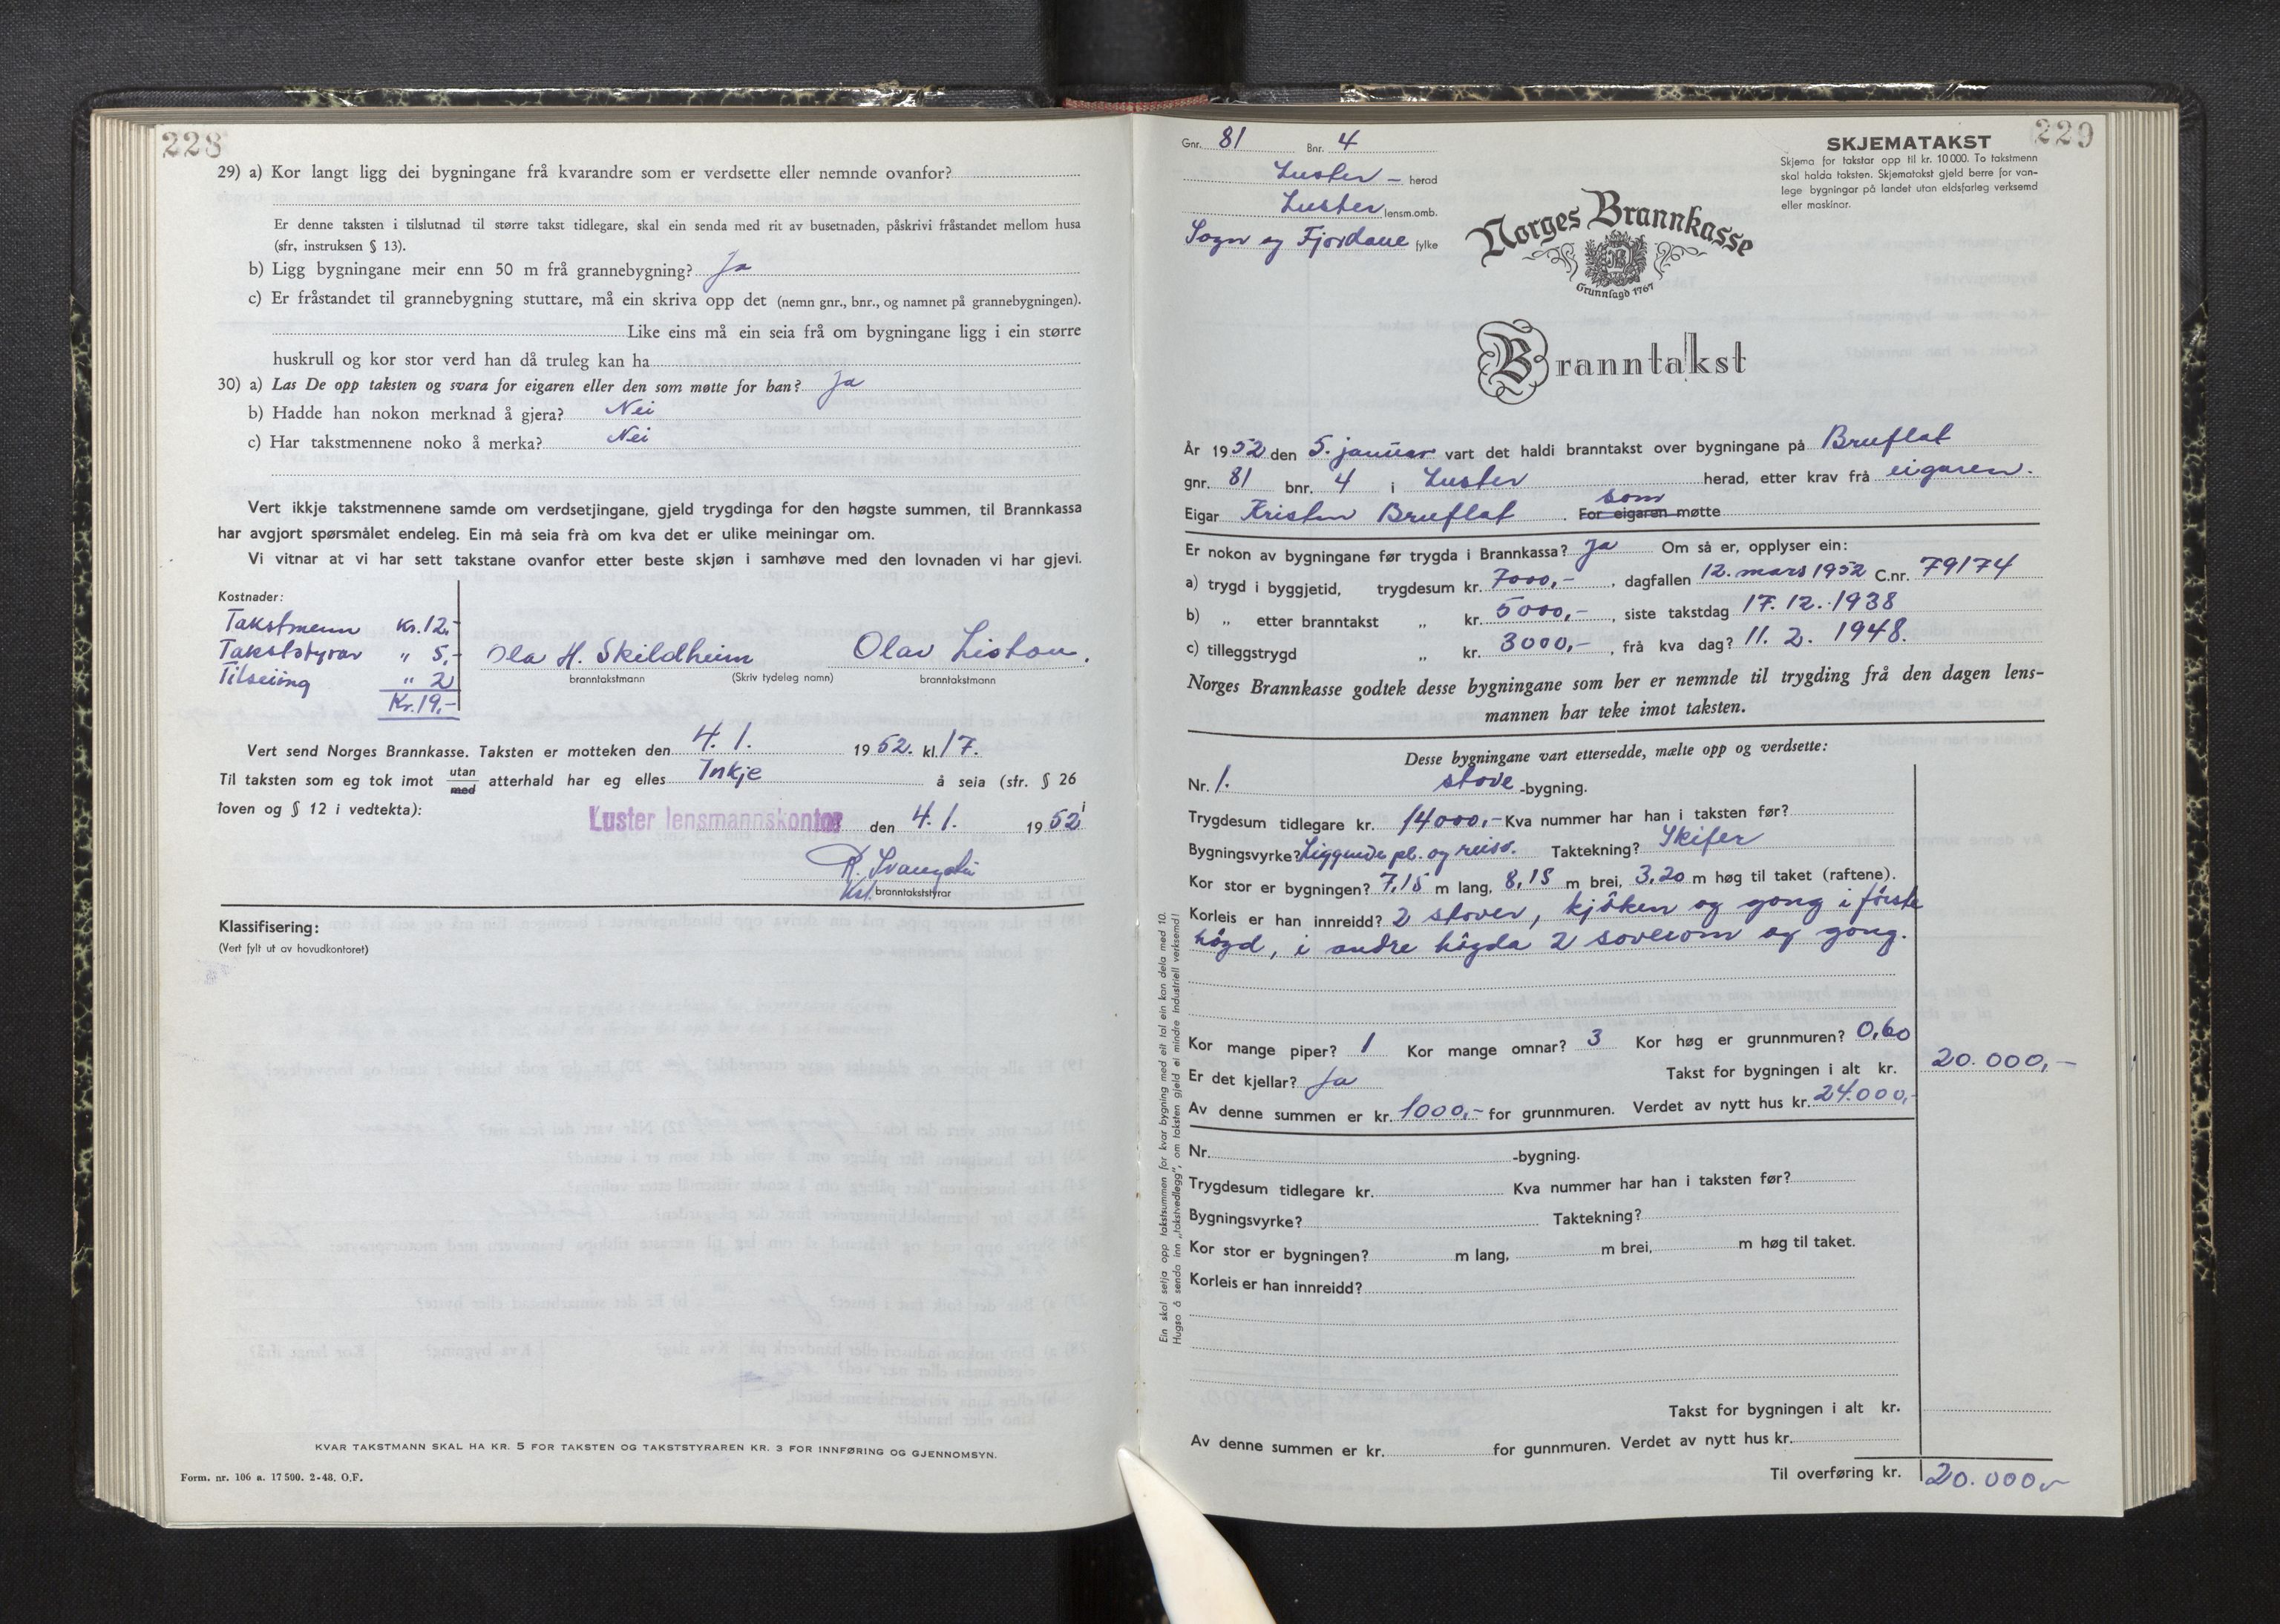 228
29) a) Kor langt ligg dei bygningane frå kvarandre som er verdsette eller nemnde ovanfor?
Er denne taksten i tilslutnad til større takst tidlegare, skal ein senda med rit av busetnaden, påskrivi fråstandet mellom husa
(sfr, instruksen § 13).
b) Ligg bygningane meir enn 50 m frå grannebygning? Ja
c) Er fråstandet til grannebygning stuttare, må ein skriva opp det (nemn gnr., bnr., og namnet på grannebygningen).
Like eins må ein seia frå om bygningane ligg i ein større
huskrull og kor stor verd han då truleg kan ha
30) a) Las De opp taksten og svara for eigaren eller den som møtte for han? Ja
b) Hadde han nokon merknad å gjera? Nei
c) Har takstmennene noko å merka? Nei
Vert ikkje takstmennene samde om verdsetjingane, gjeld trygdinga for den høgste summen, til Brannkassa
har avgjort spørsmålet endeleg. Ein må seia frå om kva det er ulike meiningar om.
Vi vitnar at vi har sett takstane ovanfor etter beste skjøn i samhøve med den lovnaden vi har gjevi.
Kostnader:
Takstmenn Kr. 12,-
Takststyrar " 5,-
Tilseiing " 2
Kr. 19,-
Ola H. Skildheim Olav Liston.
branntakstmann (Skriv tydeleg namn) branntakstmann
Vert send Norges Brannkasse. Taksten er motteken den 4. 1. 1952. kl. 17.
Til taksten som eg tok imot utan/med atterhald har eg elles Inkje å seia (sfr. § 26
loven og § 12 i vedtekta):
Luster lensmannskontor den 4. 1. 1952
Kst. branntakststyrar
Klassifisering:
(Vert fylt ut av hovudkontoret)
KVAR TAKSTMANN SKAL HA KR. 5 FOR TAKSTEN OG TAKSTSTYRAREN KR. 3 FOR INNFØRING OG GJENNOMSYN.
Form. nr. 106 a. 17 500. 2-48. O.F.
229
Gnr. 81 Bnr. 4
Luster - herad
Luster lensm.omb.
Sogn og Fjordane fylke
SKJEMATAKST
Skjema for takstar opp til kr. 10 000. To takstmenn
skal halda taksten. Skjematakst gjeld berre for van-
lege bygningar på landet utan eldsfarleg verksemd
eller maskinar.
Norges Brannkasse
Grunnlagd 1767
Branntakst
År 1952 den 5. januar vart det haldi branntakst over bygningane på Bruflat
gnr. 81 bnr. 4 i Luster herad, etter krav frå eigaren.
Eigar Kristen Bruflat. For eigaren som møtte
Er nokon av bygningane før trygda i Brannkassa? Ja Om så er, opplyser ein:
a) trygd i byggjetid, trygdesum kr. 7000,-, dagfallen 12. mars 1952 C.nr. 79174
b) „ etter branntakst „ kr. 5000,-, siste takstdag 17. 12. 1938
c) tilleggstrygd „ kr. 3000,-, frå kva dag? 11. 2. 1948.
Norges Brannkasse godtek desse bygningane som her er nemnde til trygding frå den dagen lens-
mannen har teke imot taksten.
Desse bygningane vart ettersedde, mælte opp og verdsette:
Nr. 1. stove-bygning.
Trygdesum tidlegare kr. 14000,- Kva nummer har han i taksten før?
Bygningsvyrke? Liggende pl. og reisv. Taktekning? Skifer
Kor stor er bygningen? 7,15 m lang, 8,15 m brei, 3,20 m høg til taket (raftene).
Korleis er han innreidd? 2 stover, kjöken og gong i förste
högd, i andre högda 2 soverom og gong.
Kor mange piper? 1 Kor mange omnar? 3 Kor høg er grunnmuren? 0,60
Er det kjellar? Ja Takst for bygningen i alt kr. 20.000,-
Av denne summen er kr. 1000,- for grunnmuren. Verdet av nytt hus kr. 24.000,-
Nr. -bygning.
Trygdesum tidlegare kr. Kva nummer har han i taksten før?
Bygningsvyrke? Taktekning?
Kor stor er bygningen? m lang, m brei, m høg til taket.
Korleis er han innreidd?
Takst for bygningen i alt kr.
Av denne summen er kr. for gunnmuren. Verdet av nytt hus kr.
Til overføring kr. 20.000,-
Ein skal setja opp takstsummen for kvar bygning med eit tal ein kan dela med 10.
Hugsa å senda inn „takstvedlegg", om taksten gjeld ei mindre industriell verksemd!